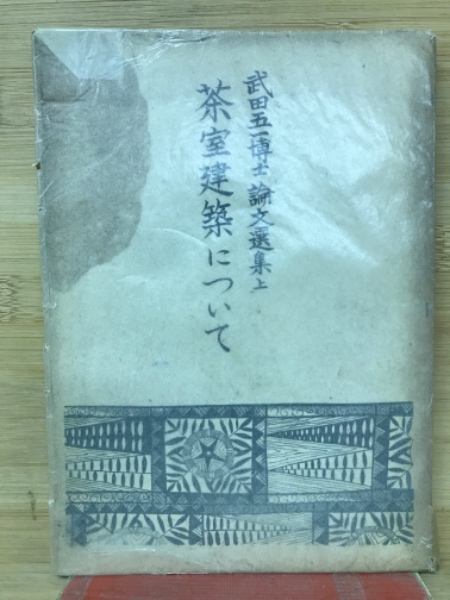 武田五一博士 論文選集 上
茶室建築について